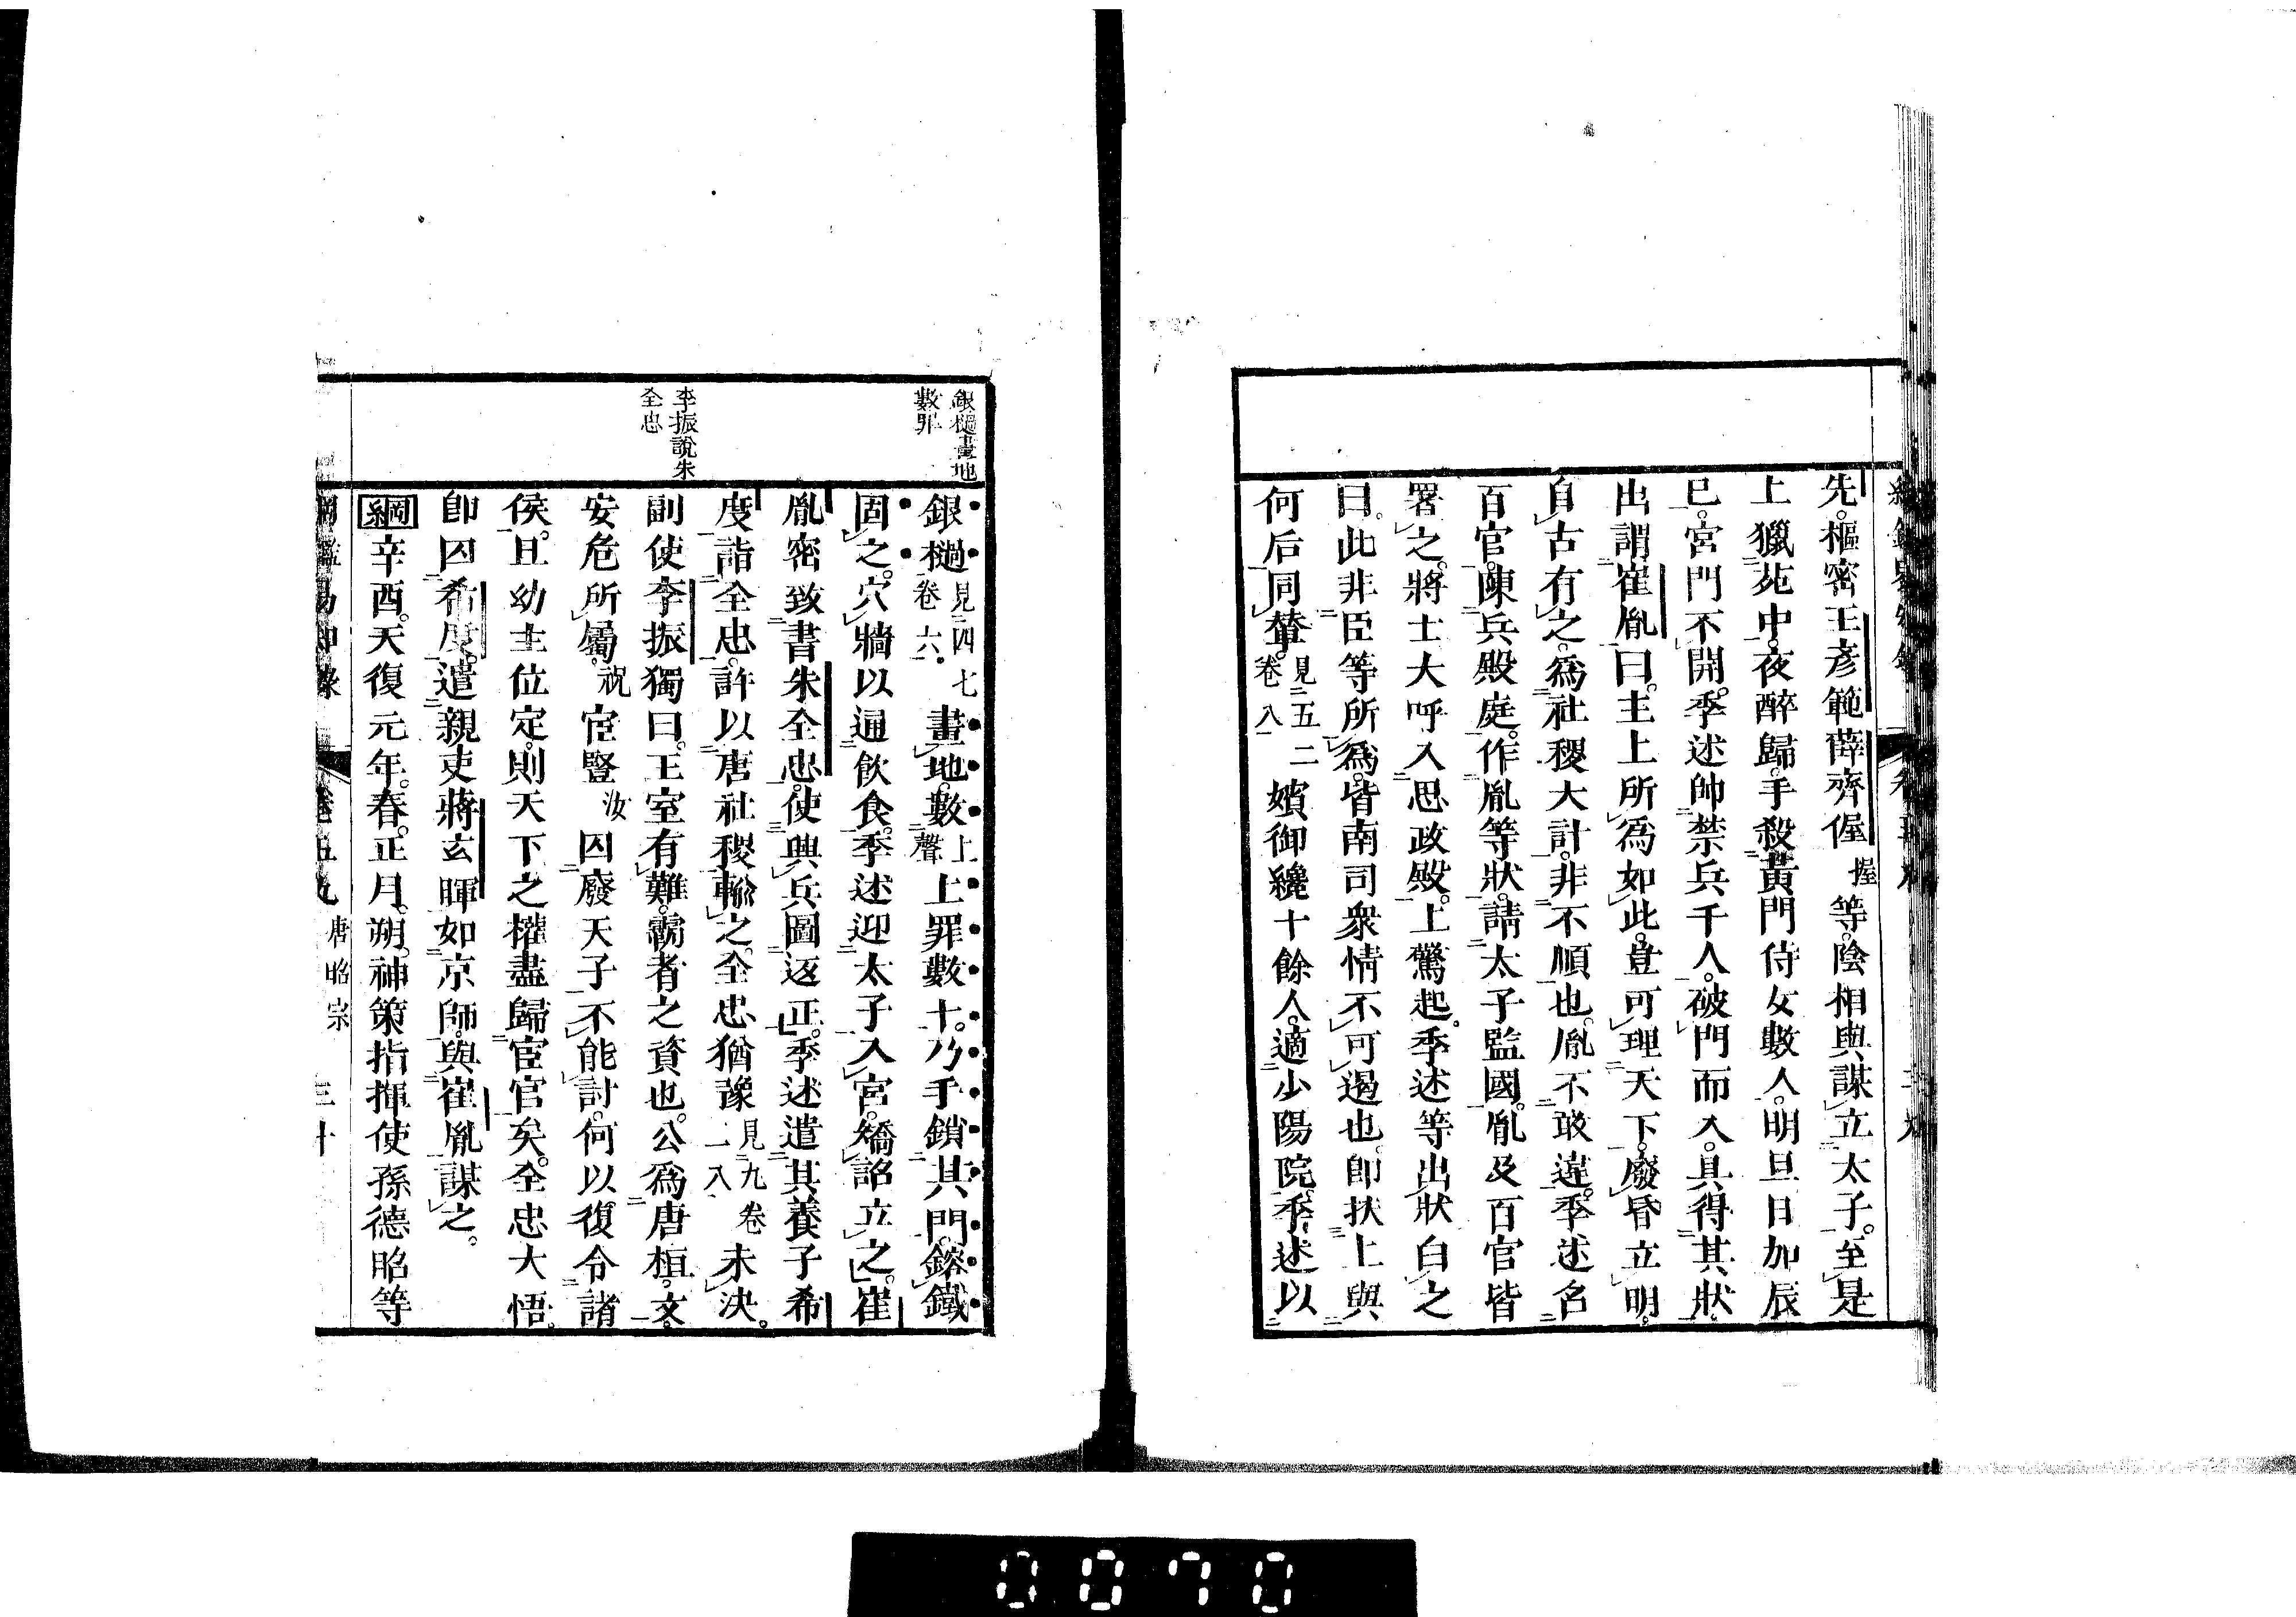 先。樞密王彥範薛齊偓握等。陰相與謀立太子。至是
上獵苑中。夜醉歸。手殺黃門侍女數人。明旦日加辰
巳。宮門不開。季述帥禁兵千人。破門而入。具得其狀。
出謂崔胤曰。主上所爲如此。豈可理天下。廢昏立明。
自古有之。爲社稷大計。非不順也。胤不敢違。季述名
百官。陳兵殿庭。作胤等狀。請太子監國。胤及百官皆
署之。將士大呼入思政殿。上驚起。季述等出狀白之
曰。此非臣等所爲。皆南司衆情不可遏也。卽扶上與
何后同輦。見五二卷八嬪御纔十餘人。適少陽院。季述以
銀檛畫地
數罪
銀檛見四七卷六畫地。數上聲上罪數十。乃手鎖其門。鎔鐵
固之。穴牆以通飲食。季述迎太子入宮。矯詔立之。崔
胤密致書朱全忠。使興兵圖返正。季述遣其養子希
度詣全忠。許以唐社稷輸之。全忠猶豫見九卷一八未決。
李振說朱
全忠
副使李振獨曰。王室有難。霸者之資也。公爲唐桓。文。
安危所屬。祝宦豎汝囚廢天子。不能討。何以復令諸
侯。且幼主位定。則天下之權盡歸宦官矣。全忠大悟。
卽囚希度。遣親吏蔣玄暉如京師。與崔胤謀之。
綱辛酉。天復元年。春。正月。朔。神策指揮使孫德昭等
綱鑑易知錄 卷五九 唐昭宗 三十